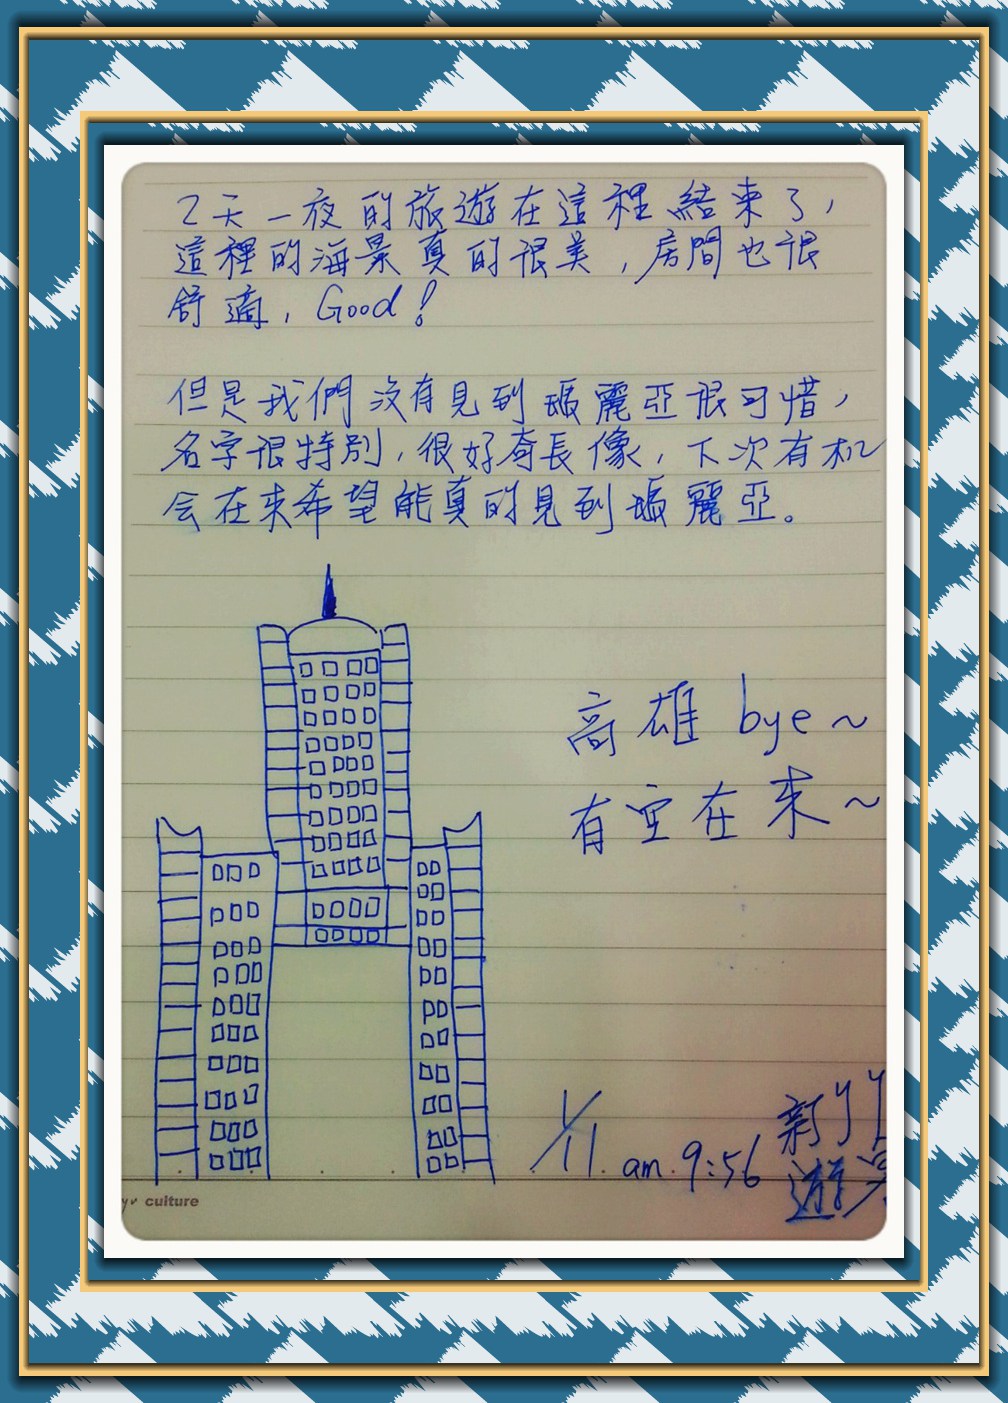 2天一夜的旅遊在這裡結束了,
這裡的海景真的很美,房間也很
舒適,Good!
但是我們沒有見到瑪麗亞很可惜,
名字很特別,很好奇長像,下次有机
会在來希望能真的見到瑪麗亞。
高雄 bye~
有空在來~
1/11. am 9:56
新竹
遊客
culture